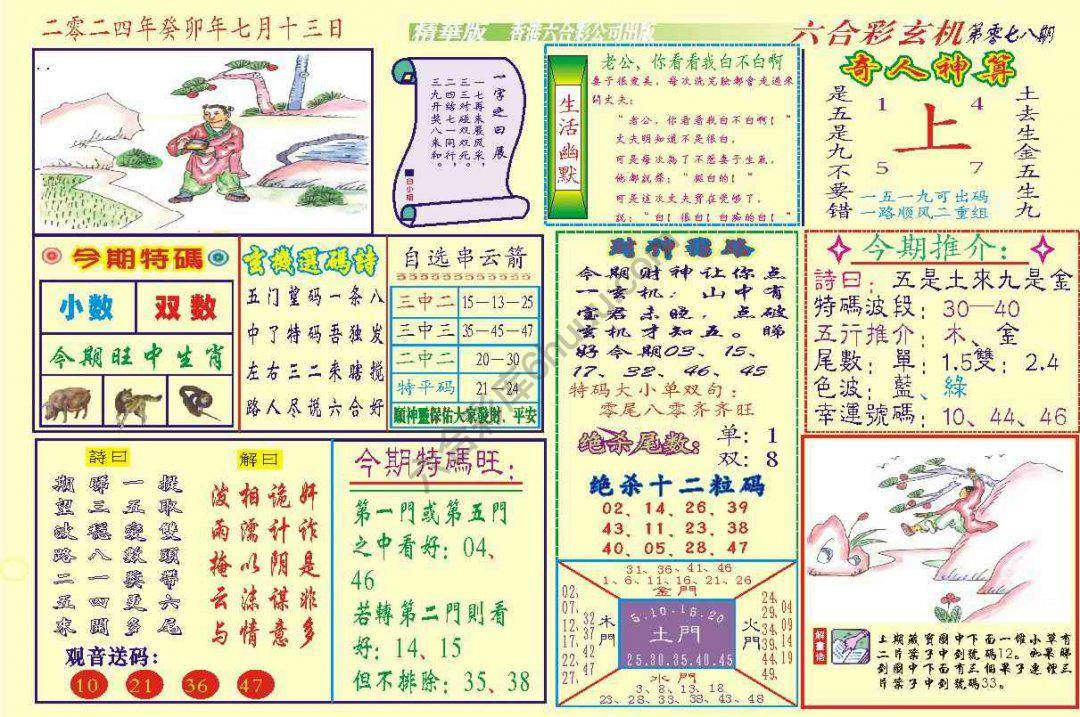 二零二四年癸卯年七月十三日
精華版 香港六合彩公司出版
六合彩玄机 第零七八期
一字之曰：展
一七再來展風采，
二三对碰双双来，
三四结七一同行，
三九开奖八来和。
白小姐
生活幽默
老公，你看看我白不白啊
妻子很爱美，每次洗完脸都會走過來
問丈夫：
“老公，你看看我白不白啊！”
丈夫明知道不是很白，
可是每次為了不惹妻子生氣，
他都說聲：“挺白的！”
可是這次丈夫實在受够了，
說：“白！很白！白痴的白！”
奇人神算
是五是九不要错
1 4
上
5 7
土去生金五生九
一五一九可出码
一路顺风二重组
今期特碼
小数 双数
今期旺中生肖
玄機選碼詩
五门望码一条八
中了特码吾独发
左右三二来瞎搅
路人尽说六合好
自选串云箭
三中二 15—13—25
三中三 35—45—47
二中二 20—30
特平码 21—24
願神靈保佑大家發財、平安
今期财神让你点
一玄机：山中有
宝君未晓，点破
玄机才知五。睇
好今期03、15、
17、32、46、45
特码大小单双句：
零尾八零齐齐旺
绝杀尾数： 单：1
双：8
绝杀十二粒码
02、14、26、39
43、11、23、38
40、05、28、47
今期推介：
詩曰：五是土來九是金
特碼波段：30—40
五行推介：木、金
尾數：單：1.5雙：2.4
色波：藍、綠
幸運號碼：10、44、46
詩曰
期睇一提
望三五取
波穩變雙
路八數頭
二一獎帶
五四更六
來開多尾
解曰
波相诡奸
雨濡计诈
掩以阴是
云沫谋非
与情意多
观音送码：
10 21 36 47
今期特碼旺：
第一門或第五門
之中看好：04、
46
若轉第二門則看
好：14、15
但不排除：35、38
31、36、41、46
1、6、11、16、21、26
金門
02、07、12、17、22、27
32 37 42 47
木門
5.10-15.20
土門
25.30.35.40.45
火門
24、29、34、39、44、49
04 09 14 19
水門
3、8、13、18
23、28、33、38、43、48
解畫佬
上期藏寶圖中下面一堆小草有
二片葉子中到號碼12。如果睇
到圖中下面有三個果子連裡三
片葉子中到號碼33。
六合彩库6huwu.com